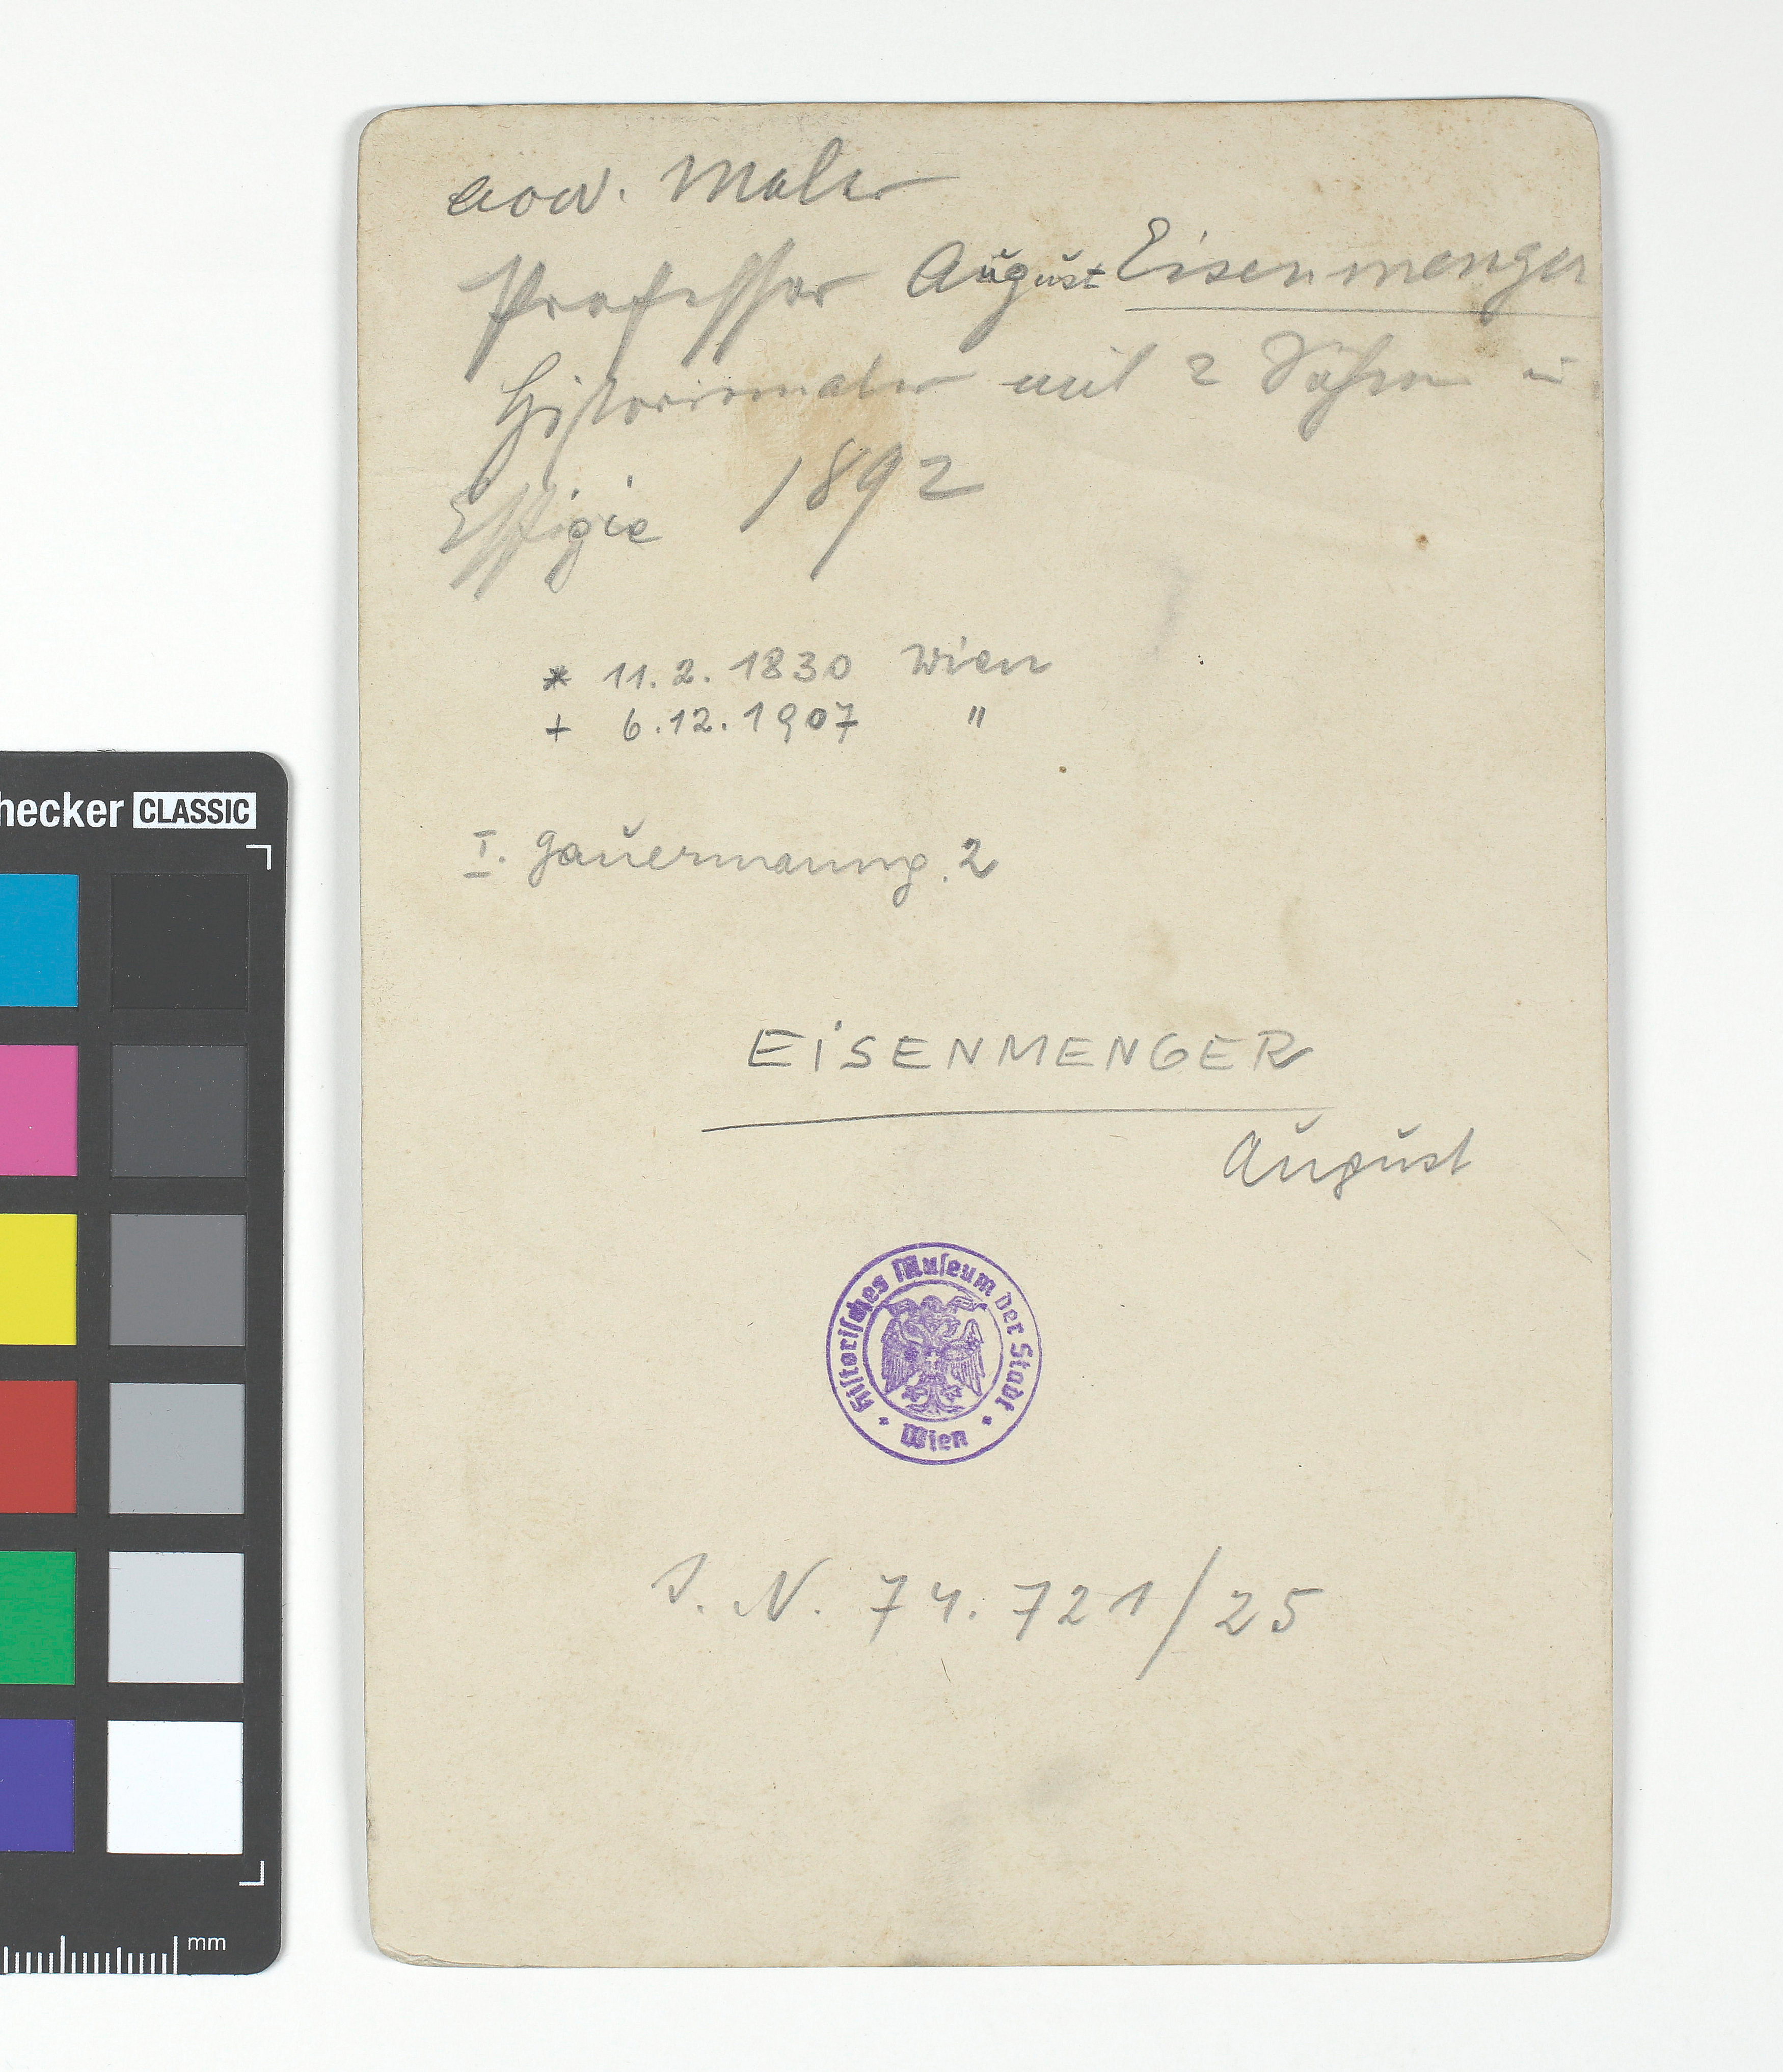 acad. Maler
Professor August Eisenmenger
Historienmaler mit 2 Söhnen in
Effigie 1892
* 11.2.1830 Wien
+ 6.12.1907 "
I. Gauermanng. 2
EISENMENGER
August
Historisches Museum der Stadt
Wien
I. N. 74.721/25
hecker CLASSIC
mm